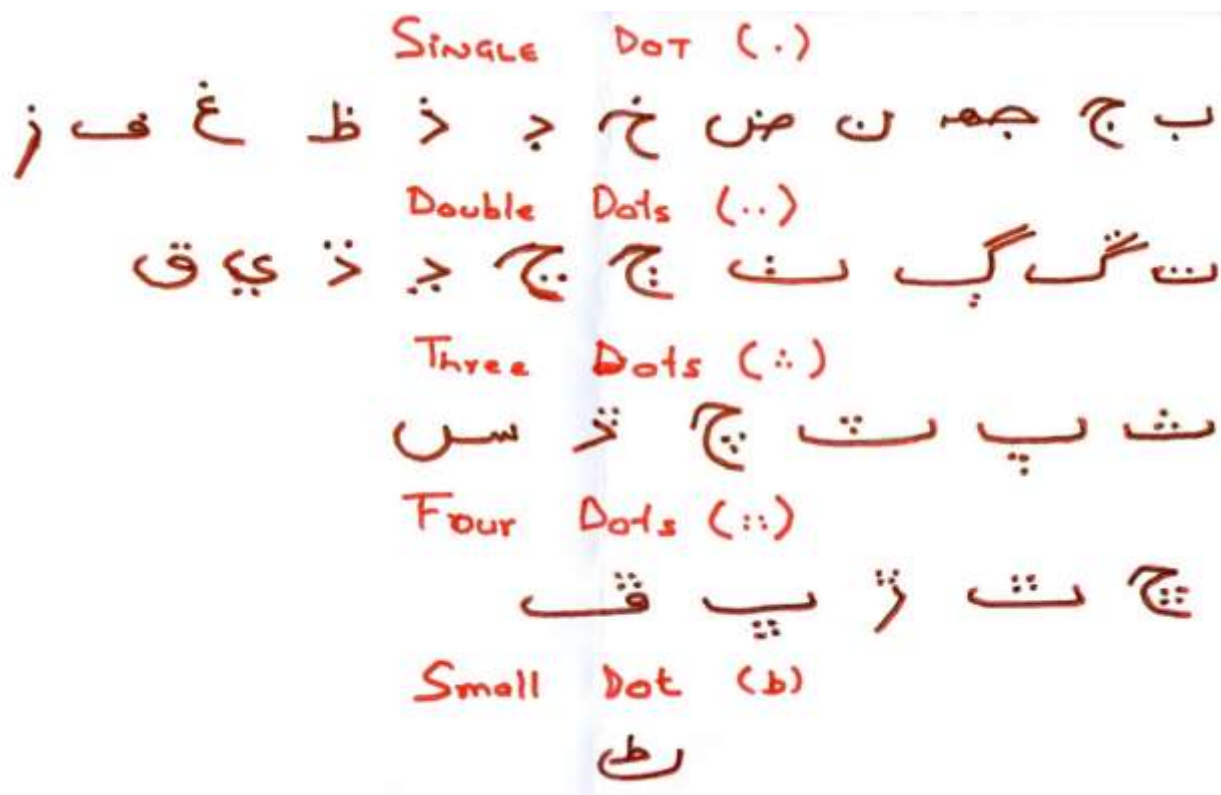 SINGLE DOT (.)
ب ج جهه ن ض خ ڊ ذ ظ غ ف ز
Double Dots (..)
ت ڱ ڳ ٺ ڄ ڃ ڍ ڌ ي ق
Three Dots (∴)
ث پ ٽ چ ڏ س
Four Dots (::)
ڇ ٿ ڙ ڀ ڦ
Small Dot (ط)
ٹ